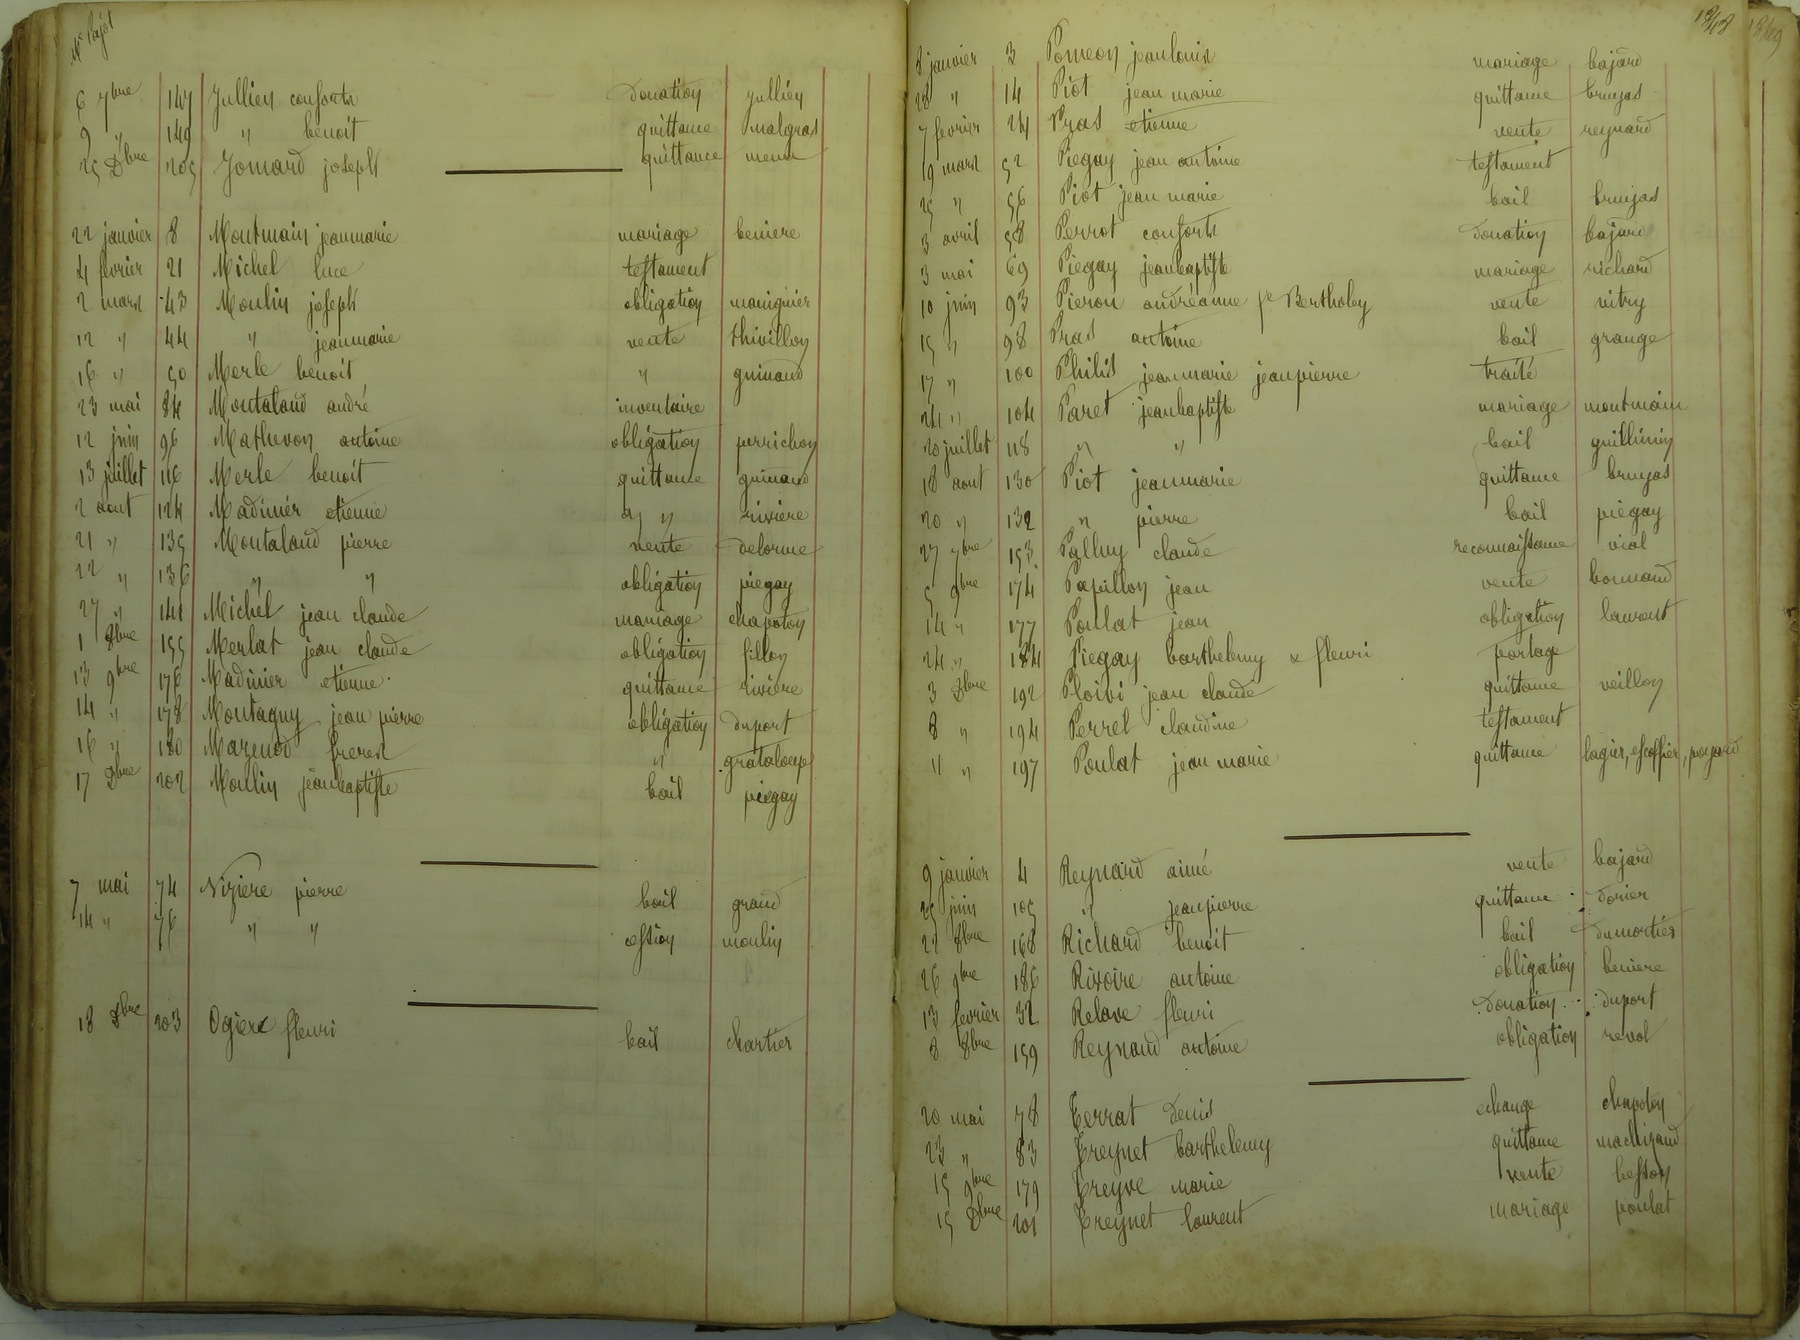 Me Pajot
6 7bre 147 Jullien conforts Donation jullien
9 " 149 " benoit quittance malgras
25 Dbre 205 Jomard joseph quittance menu
22 janvier 8 Montmain jeanmarie mariage beniere
4 fevrier 21 Michel luce testament
2 mars 43 Moulin joseph obligation mauignier
12 " 44 " jeanmarie vente thivillon
16 " 50 Merle benoit " guinand
23 mai 84 Montaland andré inventaire
12 juin 96 Mathevon antoine obligation perrichon
13 juillet 116 Merle benoit quittance guinand
2 aout 124 Madinier etienne " " riviere
21 " 135 Montaland pierre vente delorme
22 " 136 " " obligation piegay
27 " 141 Michel jean claude mariage chapoton
1 8bre 155 Merlat jean claude obligation fillon
13 9bre 176 Madinier etienne quittance riviere
14 " 178 Montagny jean pierre obligation duport
16 " 180 Mazenod freres " grataloup
17 Dbre 202 Moulin jeanbaptiste bail piegay
7 mai 74 Niziere pierre bail grand
14 " 76 " " cession moulin
18 Dbre 203 Ogier fleuri bail chartier
1848 1849
8 janvier 3 Pomeon jeanlouis mariage bajard
28 " 14 Piot jean marie quittance brujas
7 fevrier 24 Pras etienne vente reynard
19 mars 52 Piegay jean antoine testament
25 " 56 Piot jean marie bail brujas
3 avril 58 Perrot conforts donation bajard
3 mai 69 Piegay jeanbaptiste mariage richard
10 juin 93 Pieron andréanne fe Bertholey vente vitry
15 " 98 Pras antoine bail grange
17 " 100 Philis jeanmarie jeanpierre traité
24 " 104 Paret jeanbaptiste mariage montmain
20 juillet 118 " " bail guillimin
18 aout 130 Piot jeanmarie quittance brujas
20 " 132 " pierre bail piegay
27 7bre 153 Palluy claude reconnaissance vial
5 9bre 174 Papillon jean vente bonnand
14 " 177 Poulat jean obligation laurent
24 " 184 Piegay barthelemy & fleuri partage
3 Dbre 192 Ploivi jean claude quittance veillon
8 " 194 Perrel claudine testament
11 " 197 Poulat jean marie quittance lagier, escoffier, poyard
9 janvier 4 Reynard aimé vente bajard
25 juin 105 " jeanpierre quittance dorier
22 8bre 168 Richard benoit bail dumortier
26 9bre 186 Rivoire antoine obligation beniere
13 fevrier 32 Relave fleuri donation duport
8 8bre 159 Reynaud antoine obligation revol
20 mai 78 Terrat denis echange chapoton
23 " 83 Treynet barthelemy quittance machizaud
15 9bre 179 Treyve marie vente besson
15 Dbre 201 Treynet laurent mariage poulat